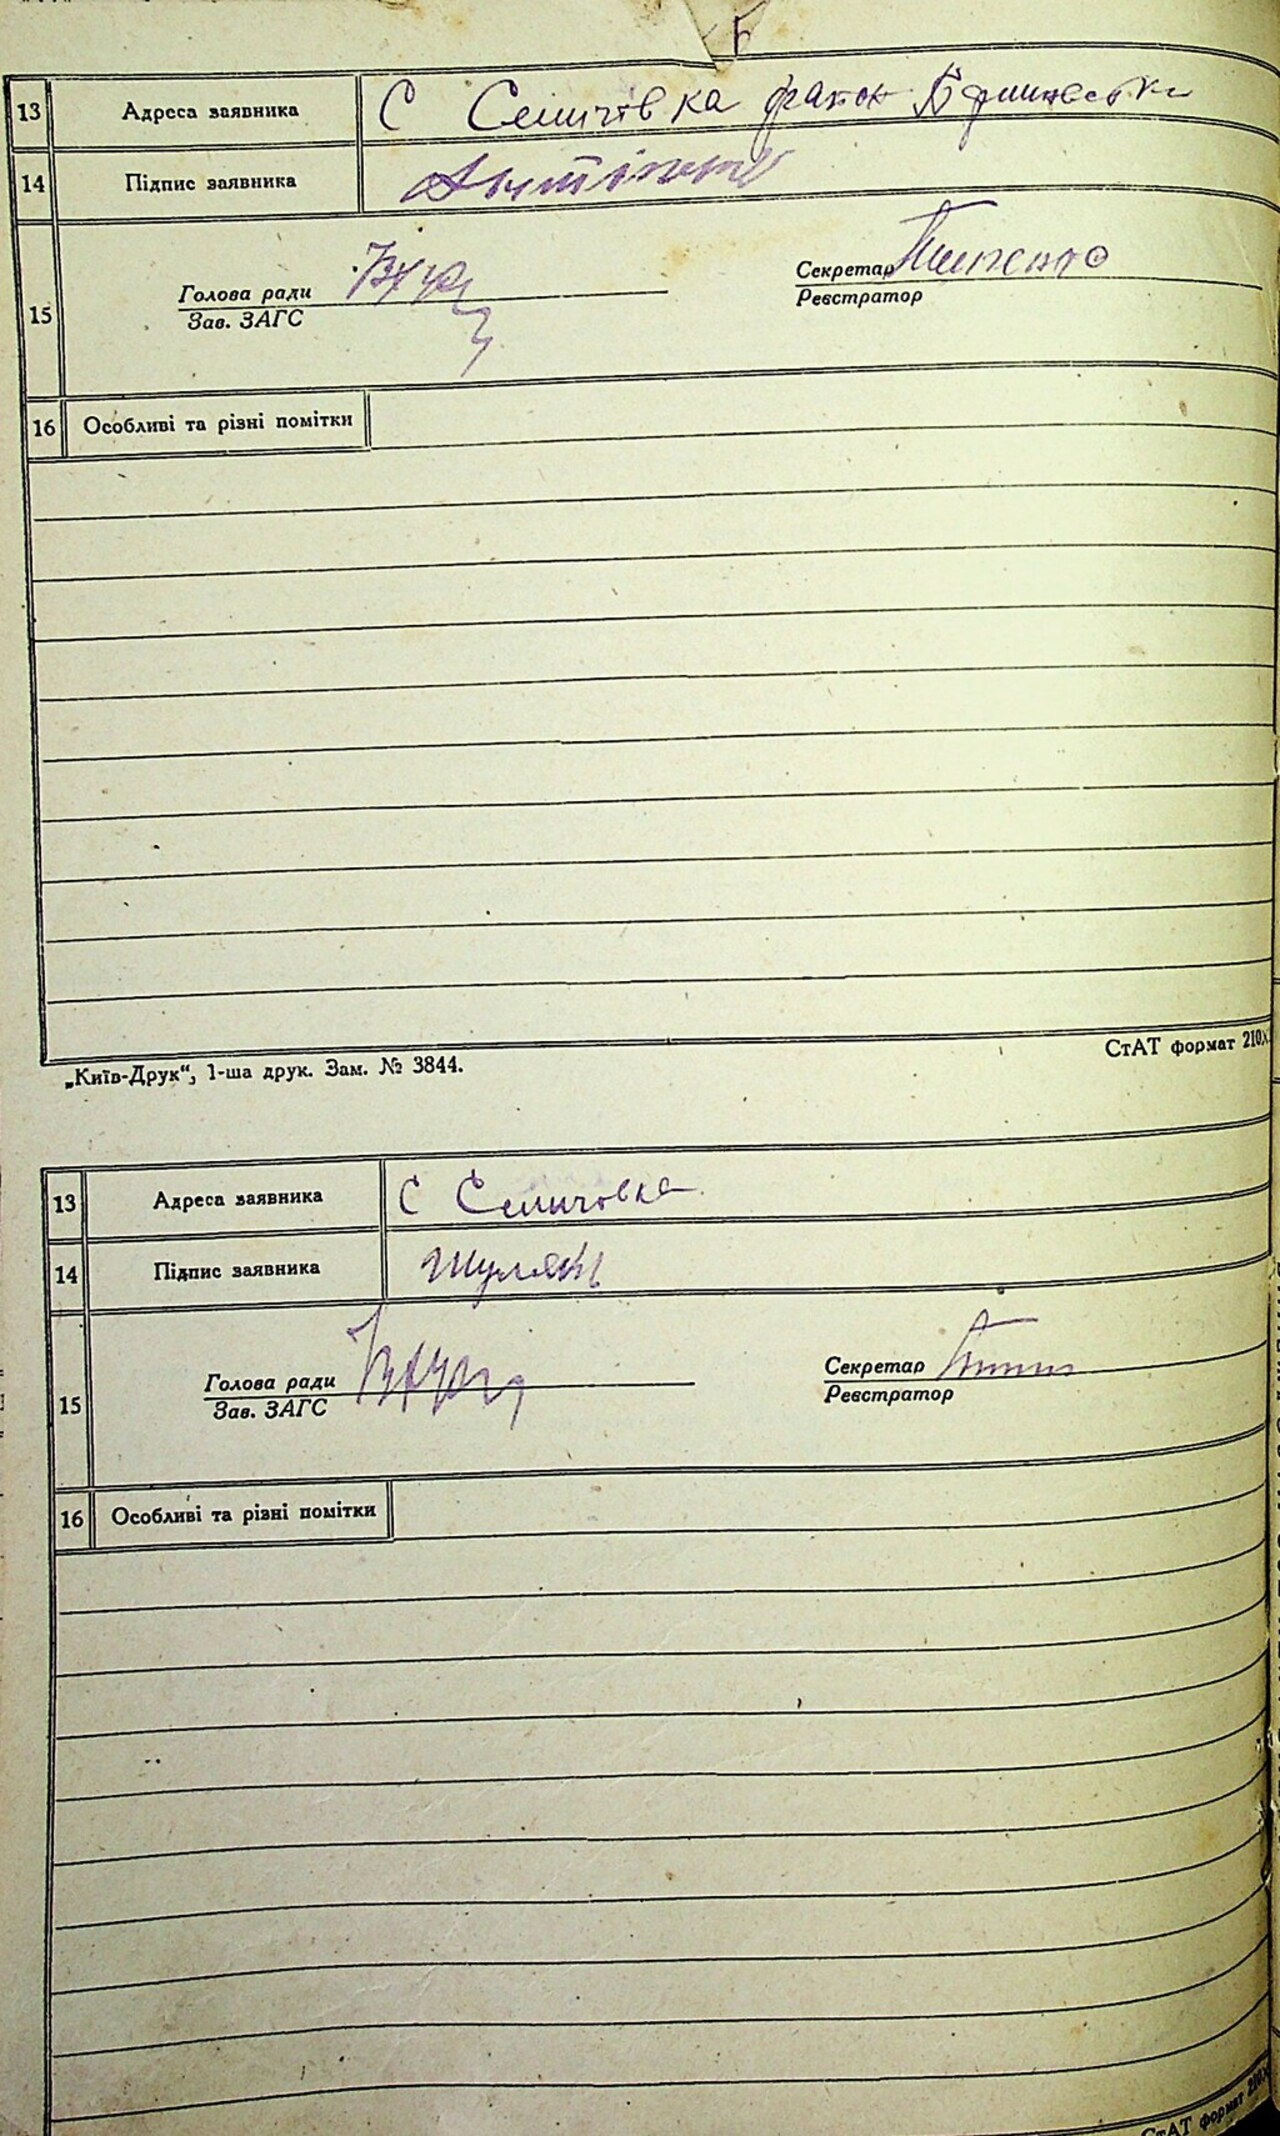 13 Адреса заявника С Селичівка район
14 Підпис заявника
15 Голова ради
Зав. ЗАГС
Секретар
Реєстратор
16 Особливі та різні помітки
„Київ-Друк“, 1-ша друк. Зам. № 3844.
СтАТ формат 210х
13 Адреса заявника С Селичовка
14 Підпис заявника Шуляк
15 Голова ради
Зав. ЗАГС
Секретар
Реєстратор
16 Особливі та різні помітки
СтАТ формат 210х